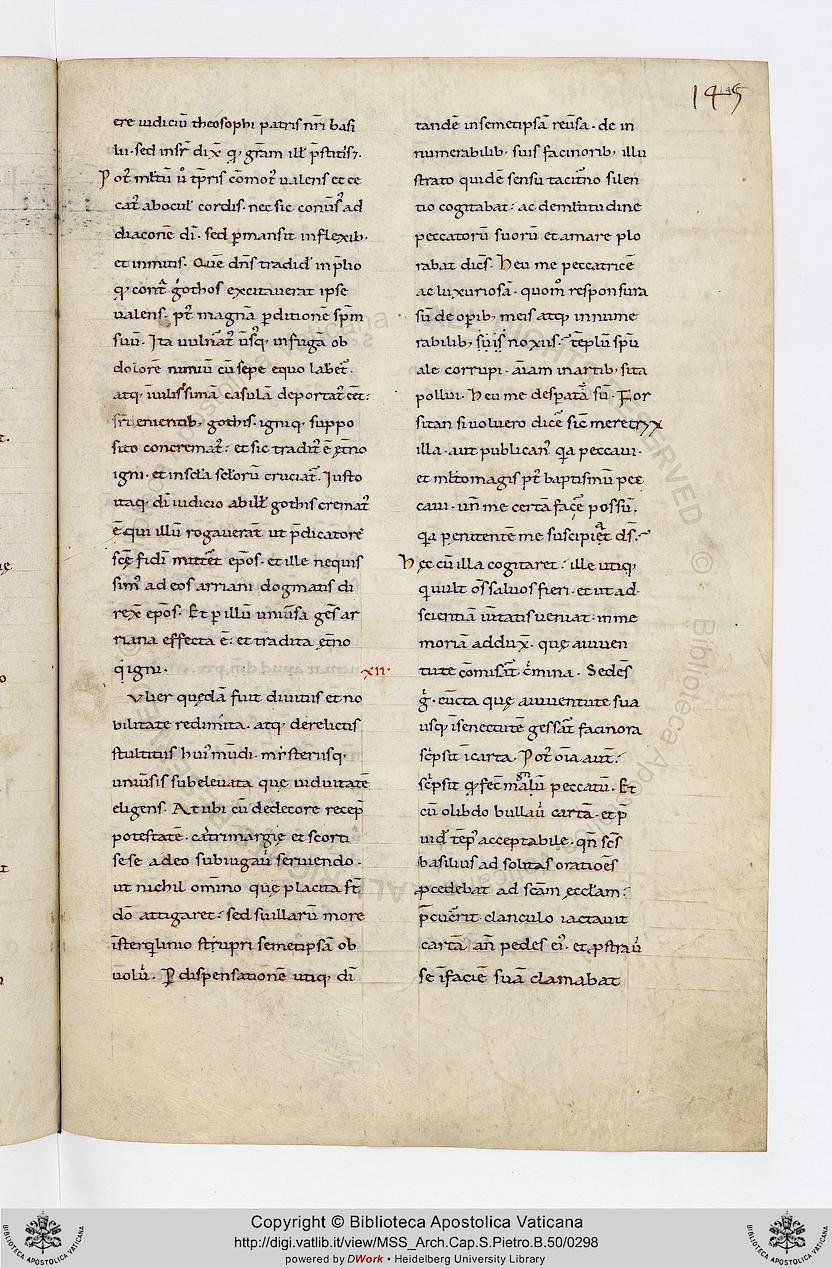 145
ere iudiciū theosophi patris nr̄i basi
lii · sed insr̄ dix̄ q̨ gr̄am ill̄ p̄stitis⁊.
et inmitis. Quē dn̄s tradid̕ in p̄lio
q̨ cont̄ gothos excitauerat ipse
ualens. pt̕ magnā p̱ditionē sp̄m
suū. Ita uuln̄at᷑ usq̨ in fugā ob
dolorē nimiū cū sepe equo labet᷑.
atq̨ ı̄uilissimā casulā deportat᷑ cēt:
sito concremat᷑: et sic tradit᷑ ē ęt̄no
igni. et inscl̄a scl̄orū cruciat᷑. Iusto
itaq̨ dı̄ iudicio ab ill̄ gothis cremat᷑
ē qui illū rogauerat̄ ut p̄dicatorē
scę̄ fidī mittēt ep̄os. et ille nequis
sim᷒ ad eos arriani dogmatis di
rex̄ ep̄os. Et p̱ illū uniūsa gēs ar
riana effecta ē: et tradita ęt̄no
q̨ igni.
xii.
ulier quędā fuit diuitiis et no
bilitate redimita. atq̨ derelictis
stultitiis hui᷒ mūdi. mr̄steriisq̨
uniūsis subeleuata quę uiduitatē
eligens. At ubi cū dedecore recep̄
potestatē. cat᷑rimargię et scorti
sese adeo subiugau᷑ seruiendo.
ut nichil om̄ino que placita st̄
dō attigaret: sed suillarū more
ı̄sterq̨linio strupri semetipsā ob
uolū. P̱ dispensationē utiq̨ dı̄
tandē insemetipsā reūsa. de in
numerabilib; suis facinorib; illu
strato quidē sensu tacit̄no silen
tio cogitabat: ac de ml̄titudine
peccatorū suorū et amare plo
rabat dicēs. Heu me peccatricē
ac luxuriosā. quom̄ responsura
sū de op̱ib; meis atq̨ innume
rabilib; suis noxiis: tēplū sp̄u
ale corrupi. aı̄am inartib; sita
pollui. Heu me desp̱atā sū. For
sitan si uoluero dicē sic̄ meretryx
illa. aut publican᷒ q̨a peccaui.
et ml̄tomagis pt̕ baptismū pec
caui. un̄ me certā facē possū.
q̨a penitentē me suscipiet ds̄:
Hęc cū illa cogitaret: ille utiq̨
q̨ uult os̄ saluos fieri. et ut ad
scientiā ūitatis ueniat. in me
moriā addux̄. quę a iuuen
tute cōmisat̄ c̕mina. Sedēs
g̊. cūcta quę a iuuentute sua
usq̨ ı̄senectutē gessat̄ facinora
sc̕psit ı̄carta. Post oı̄a aut̄:
sc̕psit q̨ fec̄ magnū malū peccatū. Et
cū olibdo bullau᷑ cartā. et p̄
uid᷑ tēp᷒ acceptabile. qn̄ sc̄s
basilius ad solitas oratioēs
p̱cedebat ad sc̄am ęccl̄am:
p̄cuc̄rit clanculo iactauit
cartā an̄ pedes ei᷒. et p̱strau᷑
se ı̄faciē suā clamabat
Copyright © Biblioteca Apostolica Vaticana
http://digi.vatlib.it/view/MSS_Arch.Cap.S.Pietro.B.50/0298
powered by DWork • Heidelberg University Library
BIBLIOTECA APOSTOLICA VATICANA
BIBLIOTECA APOSTOLICA VATICANA